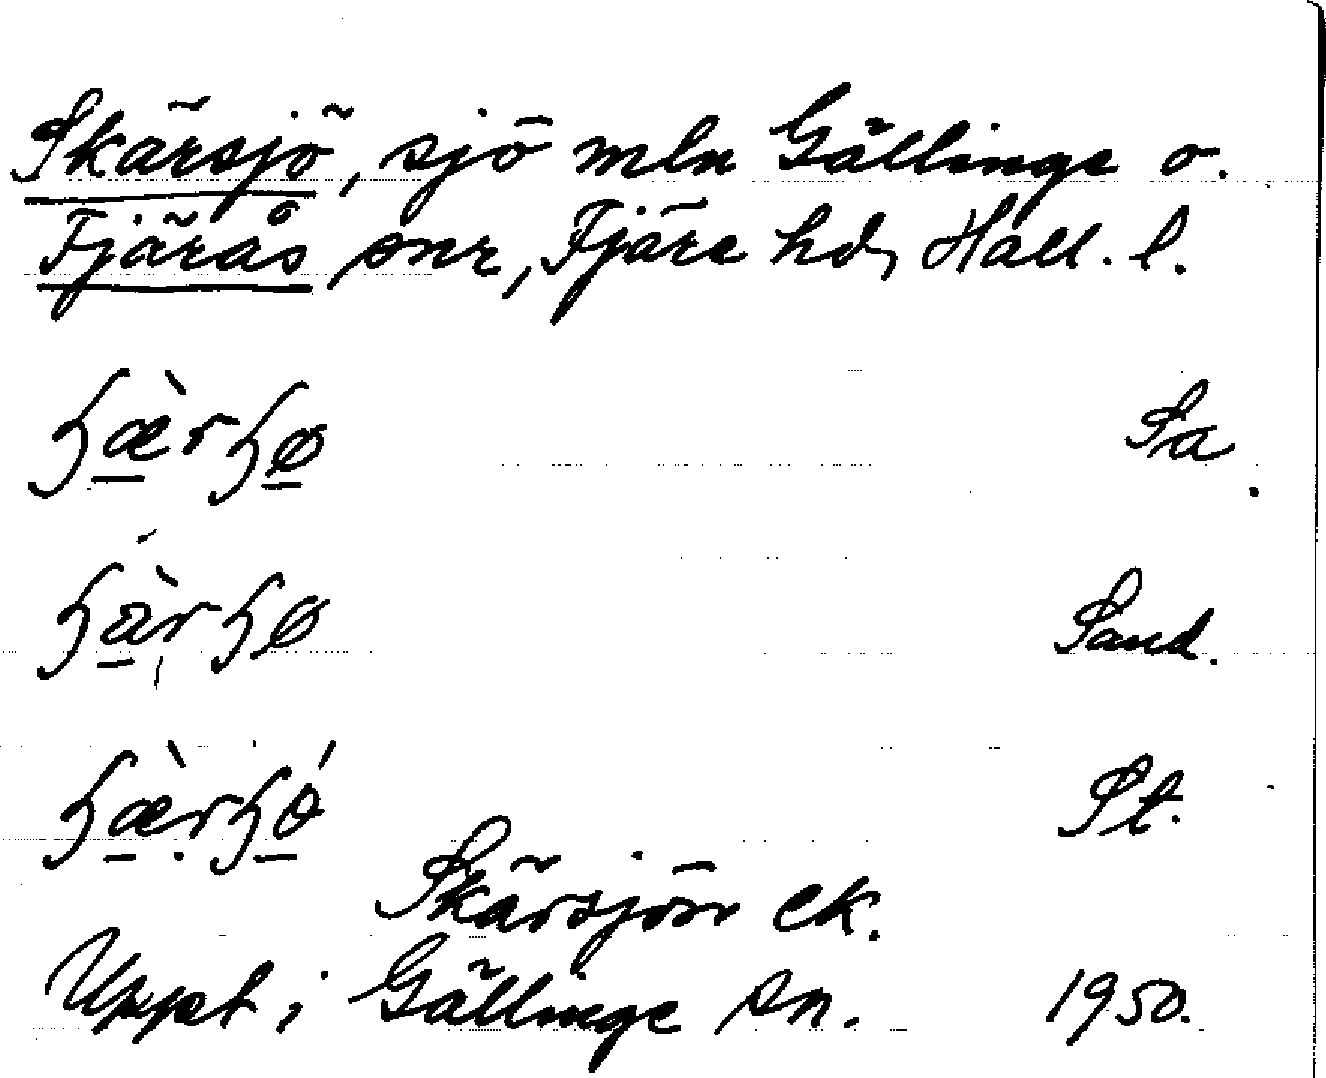 Skärsjö, sjö mln Gällinge o.
Fjärås snr, Fjäre hd, Hall. l.
Sa.
Sand.
St.
Skärsjön ek.
Uppt. i Gällinge sn. 1950.